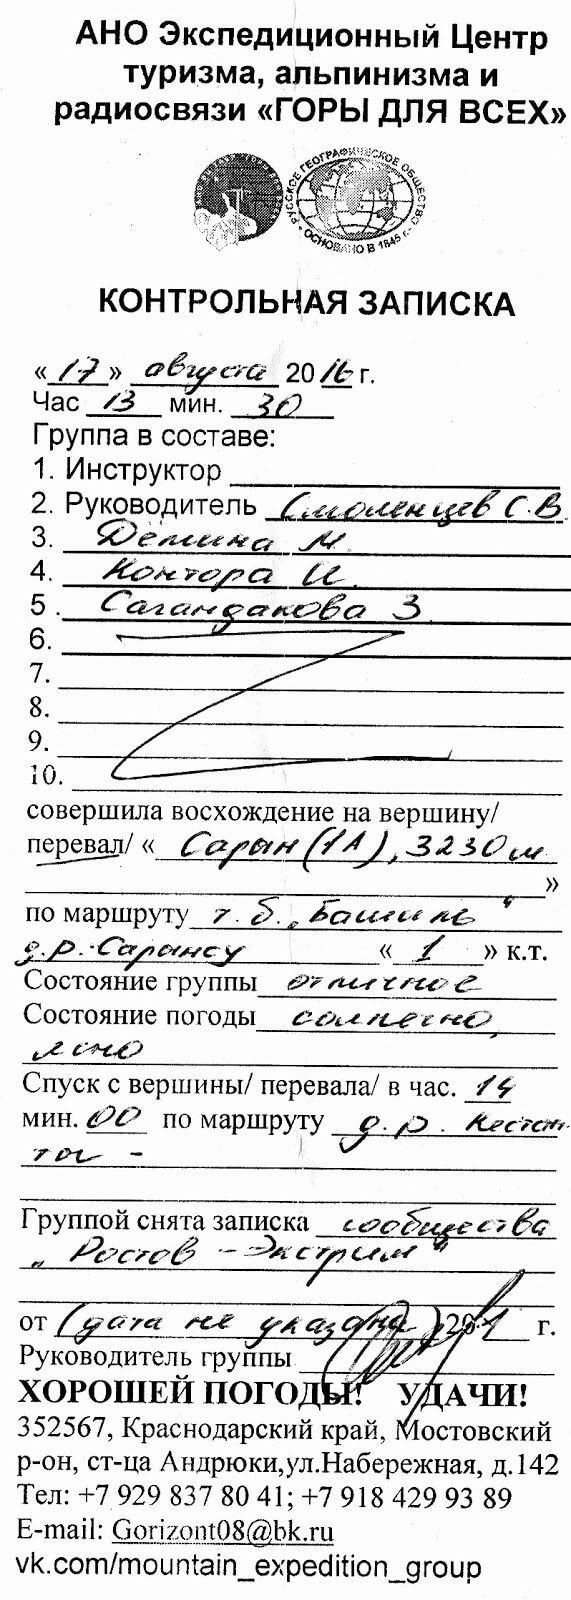 АНО Экспедиционный Центр
туризма, альпинизма и
радиосвязи «ГОРЫ ДЛЯ ВСЕХ»
РУССКОЕ ГЕОГРАФИЧЕСКОЕ ОБЩЕСТВО
ОСНОВАНО В 1845 г.
КОНТРОЛЬНАЯ ЗАПИСКА
«17» августа 2016 г.
Час 13 мин. 30
Группа в составе:
1. Инструктор
2. Руководитель Смоленцев С.В
3. Дёмина М.
4. Контора И.
5. Сагандакова З
6.
7.
8.
9.
10.
совершила восхождение на вершину/
перевал/ « Сарын (1А), 3230м
»
по маршруту т.б. „Башиль"
д.р. Сарынсу « 1 » к.т.
Состояние группы отличное
Состояние погоды солнечно,
ясно
Спуск с вершины/ перевала/ в час. 14
мин. 00 по маршруту д.р. Кестан
тог -
Группой снята записка сообщества
„Ростов - Экстрим"
от (дата не указана) 20 1 г.
Руководитель группы
ХОРОШЕЙ ПОГОДЫ! УДАЧИ!
352567, Краснодарский край, Мостовский
р-он, ст-ца Андрюки,ул.Набережная, д.142
Тел: +7 929 837 80 41; +7 918 429 93 89
E-mail: Gorizont08@bk.ru
vk.com/mountain_expedition_group